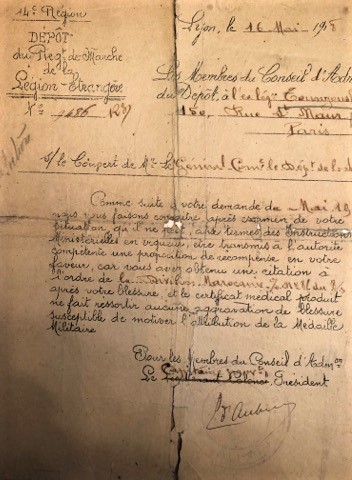 14e Région
DÉPÔT
du Régt de Marche
de la
Légion-Étrangère
Lyon, le 16 Mai 19
Les Membres du Conseil d'Adm
du Dépôt, à l'ex lég
Rue St Maur
Paris
s/ le Couvert de Mr le Général Comt le Dépt de la
Comme suite à votre demande du Mai 19
nous vous faisons connaître, après examen de votre
situation, qu'il ne aux termes des Instructions
Ministérielles en vigueur, être transmis à l'autorité
compétente une proposition de récompense en votre
faveur, car vous avez obtenu une citation à
l'ordre de la Division Marocaine
après votre blessure, et le certificat médical produit
ne fait ressortir aucune aggravation de blessure
susceptible de motiver l'attribution de la Médaille
Militaire
Pour les Membres du Conseil d'Admon
Le Capitaine Président